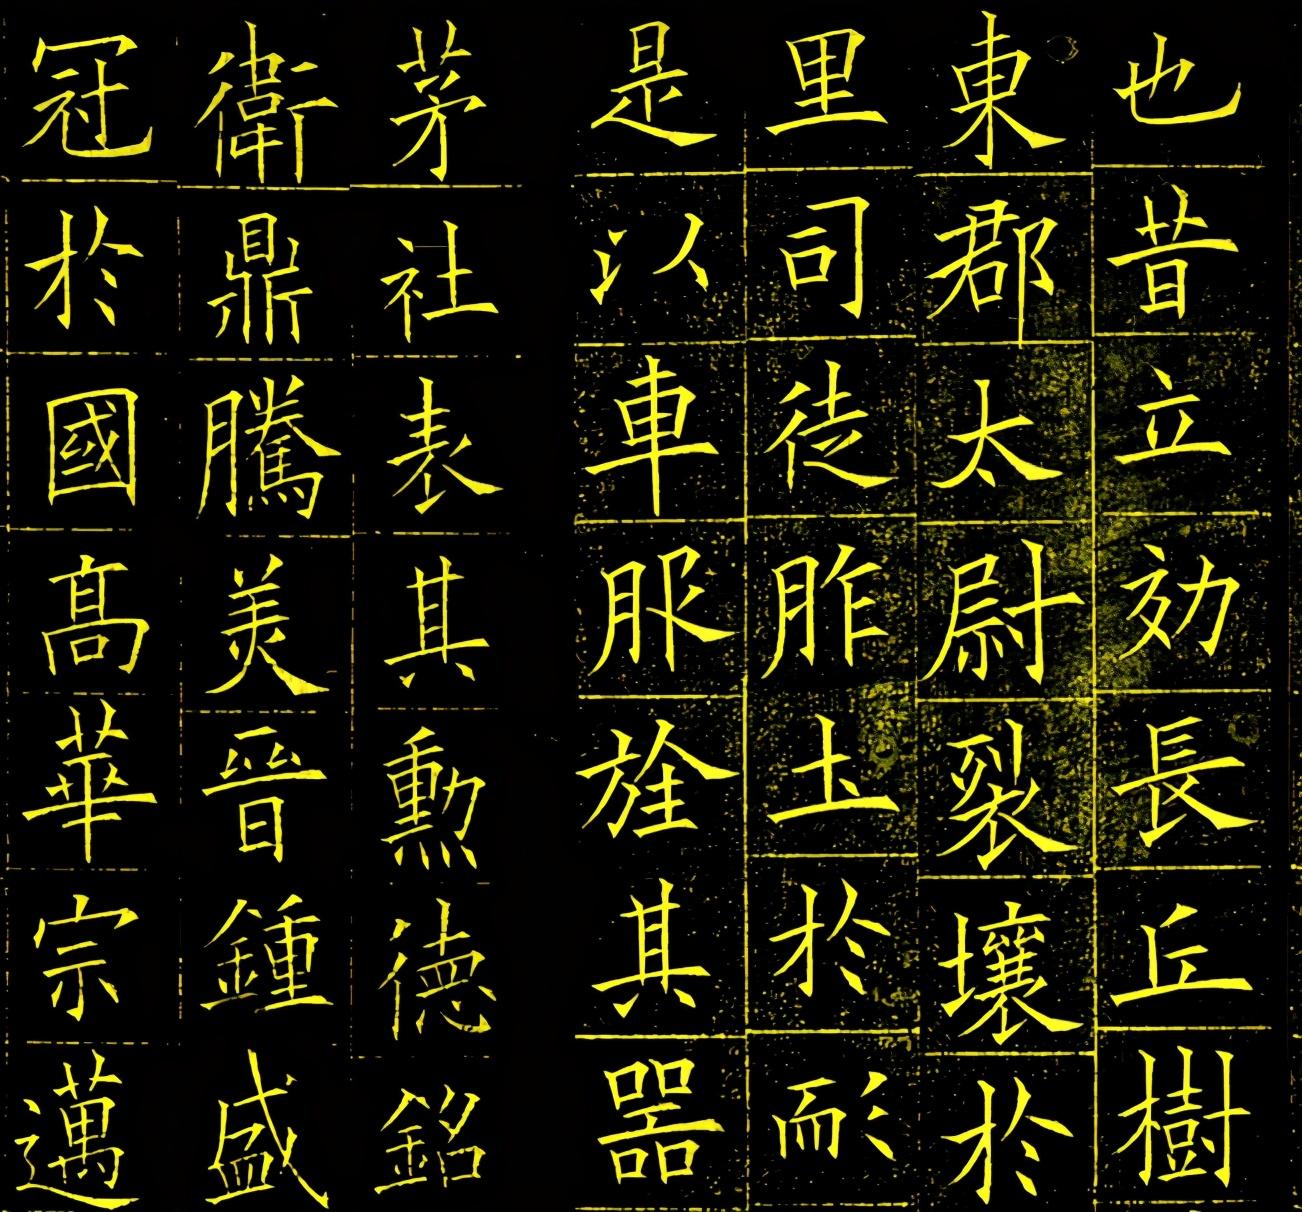 也昔立効長丘樹
東郡太尉裂壤於
里司徒胙土於形
是以車服旌其器
茅社表其勲德銘
衛鼎騰美晉鍾盛
冠於國髙華宗邁